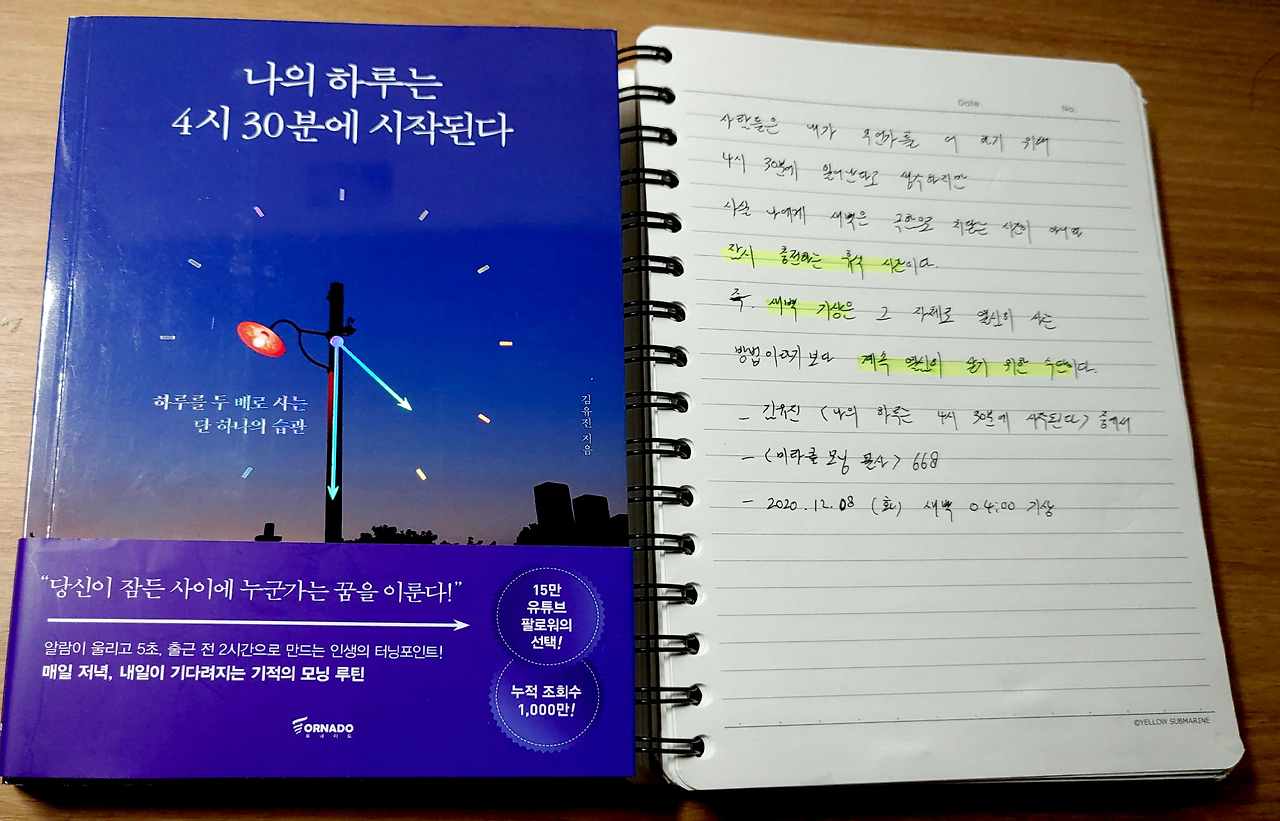 나의 하루는
4시 30분에 시작된다
하루를 두 배로 사는
단 하나의 습관
김유진 지음
“당신이 잠든 사이에 누군가는 꿈을 이룬다!”
알람이 울리고 5초, 출근 전 2시간으로 만드는 인생의 터닝포인트!
매일 저녁, 내일이 기다려지는 기적의 모닝 루틴
15만
유튜브
팔로워의
선택!
누적 조회수
1,000만!
TORNADO
토네이도
Date
No.
사람들은 내가 무언가를 더 하기 위해
4시 30분에 일어난다고 생각하지만
사실 나에게 새벽은 극한으로 치닫는 시간이 아니라
잠시 충전하는 휴식 시간이다.
즉. 새벽 기상은 그 자체로 열심히 사는
방법이라기보다 계속 열심히 살기 위한 수단이다.
- 김유진 <나의 하루는 4시 30분에 시작된다> 중에서
- <미라클 모닝 필사> 668
- 2020.12.08 (화) 새벽 04:00 기상
©YELLOW SUBMARINE